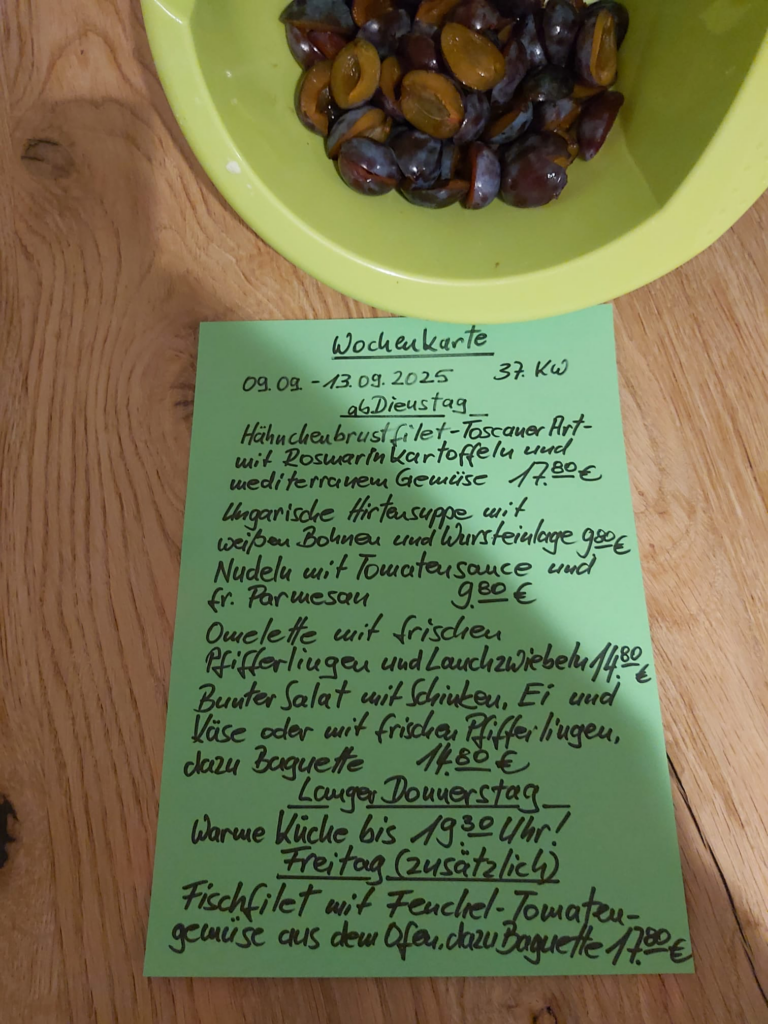 Wochenkarte
09.09. - 13.09.2025 37. KW
ab Dienstag
Hähnchenbrustfilet-Toscaner Art-
mit Rosmarinkartoffeln und
mediterranem Gemüse 17.80 €
Ungarische Hirtensuppe mit
weißen Bohnen und Wursteinlage 9.80 €
Nudeln mit Tomatensauce und
fr. Parmesan 9.80 €
Omelette mit frischen
Pfifferlingen und Lauchzwiebeln 14.80 €
Bunter Salat mit Schinken, Ei und
Käse oder mit frischen Pfifferlingen,
dazu Baguette 14.80 €
Langer Donnerstag
Warme Küche bis 19.30 Uhr!
Freitag (zusätzlich)
Fischfilet mit Fenchel-Tomaten-
gemüse aus dem Ofen, dazu Baguette 17.80 €